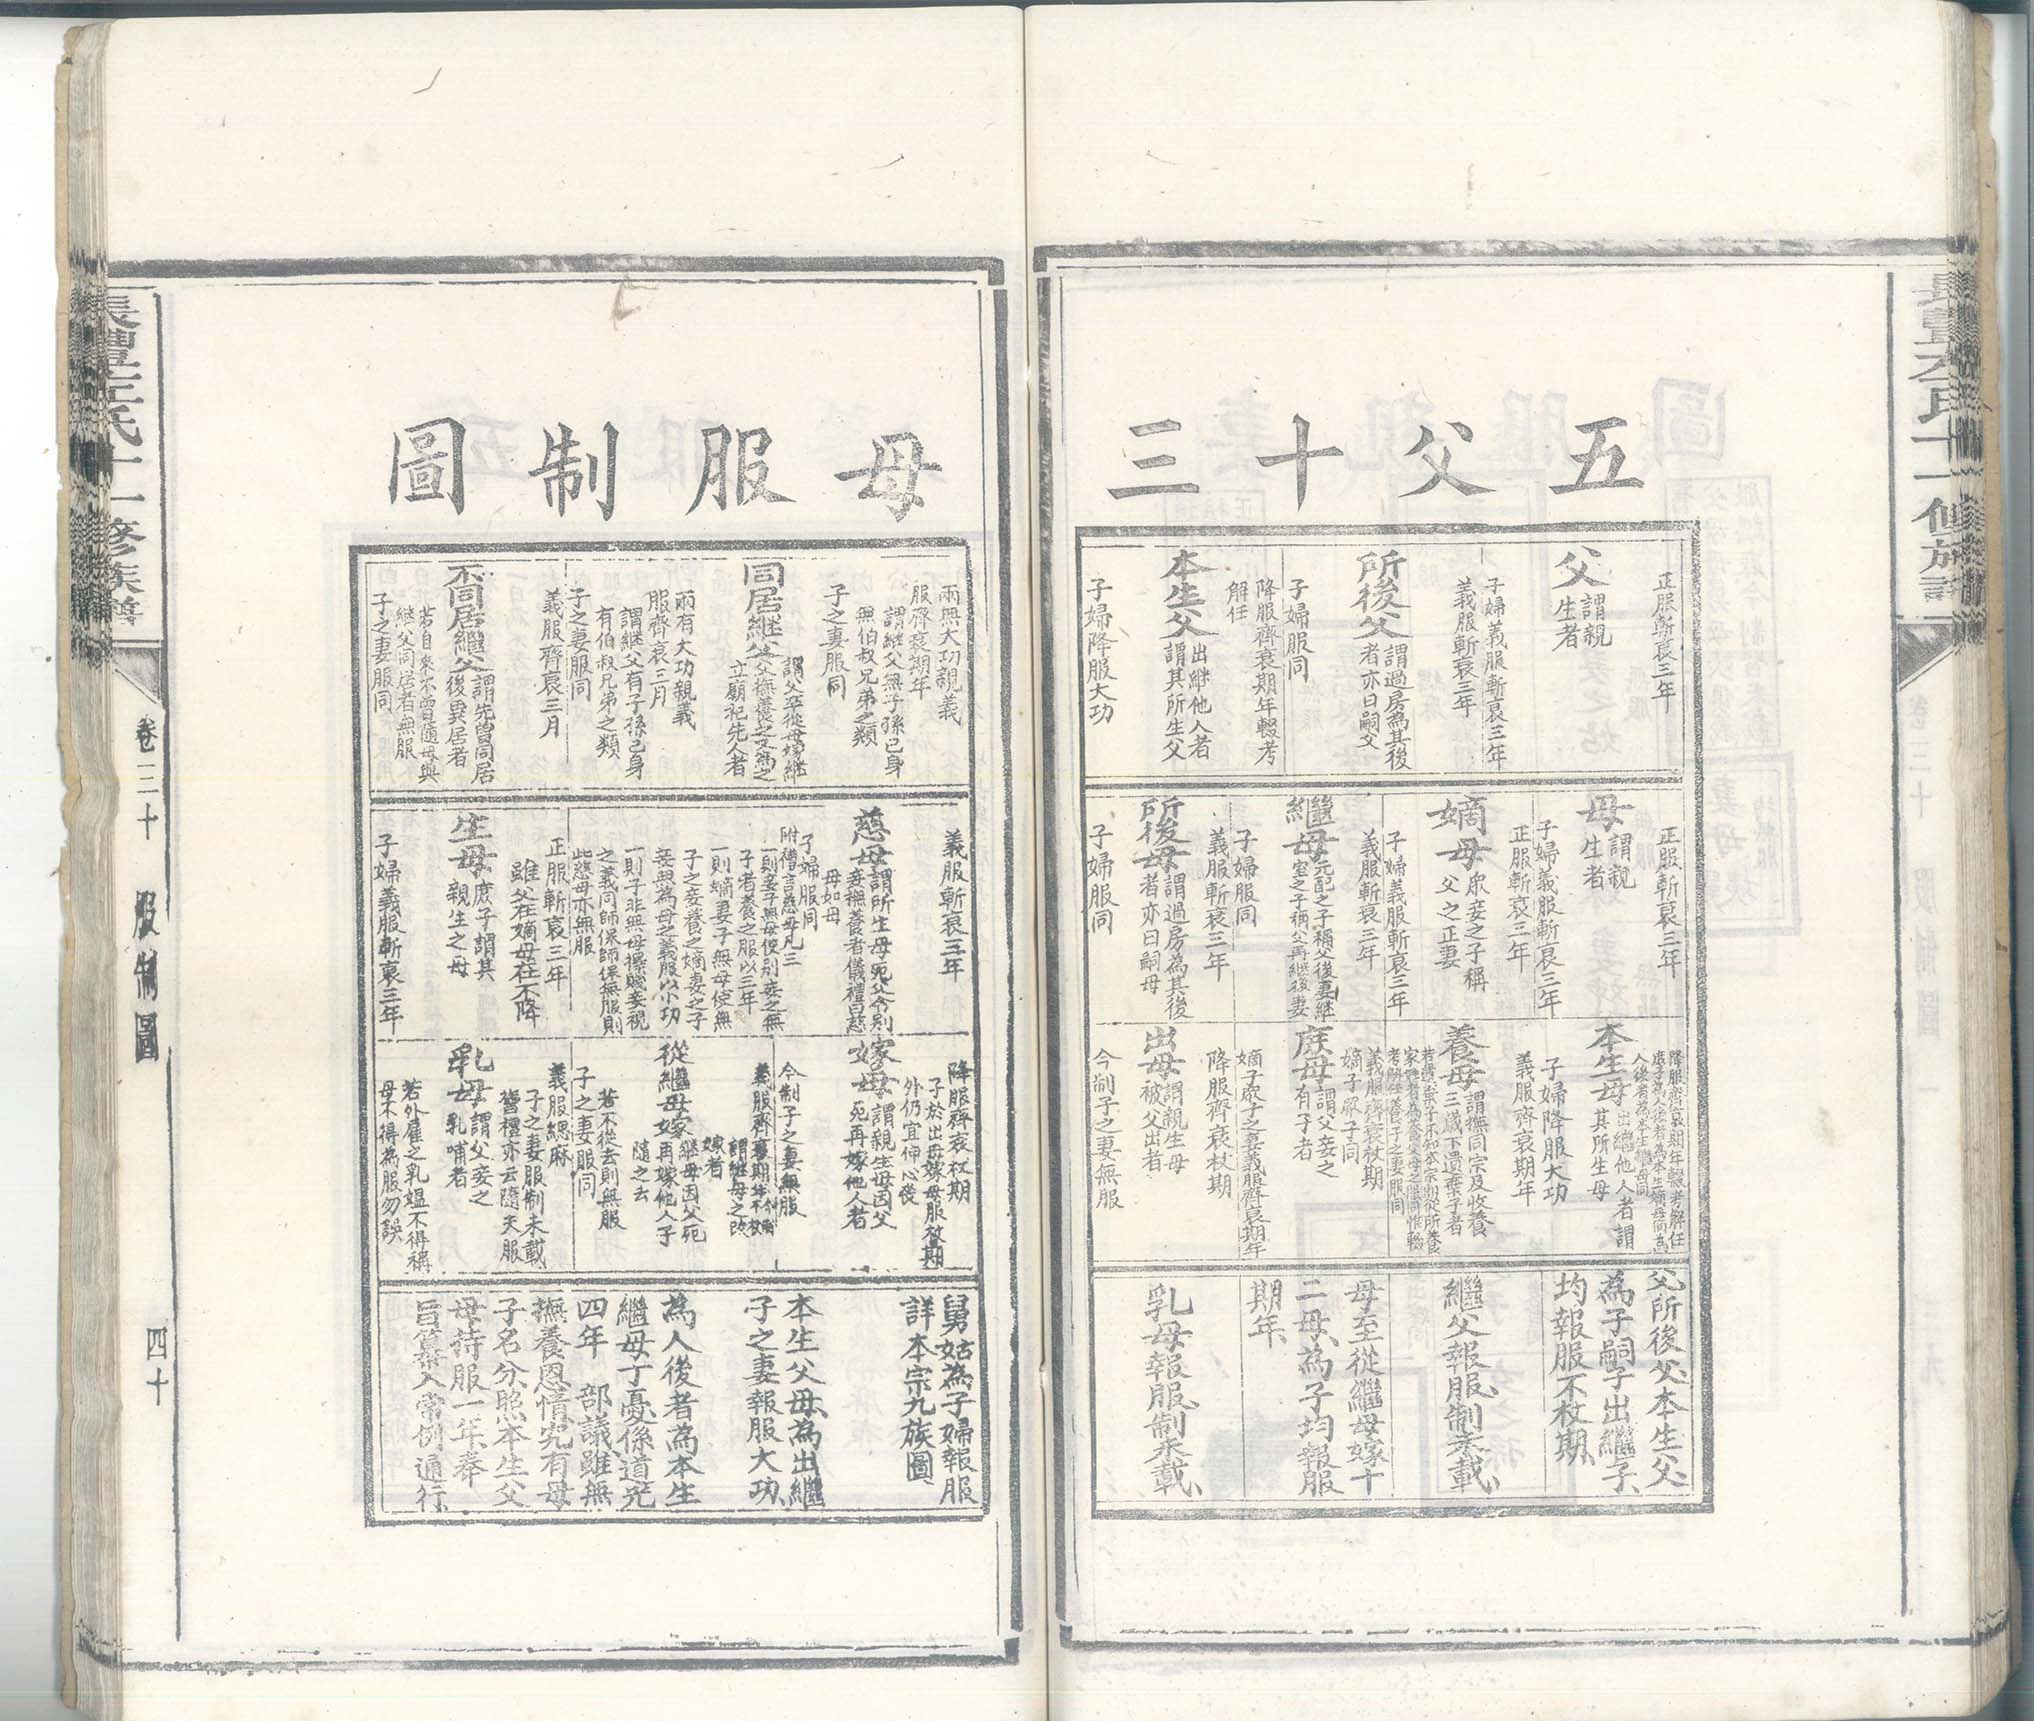 五父十三
母服制圖
正服斬衰三年
父
謂親
生者
子婦義服斬衰三年
義服斬衰三年
所後父
謂過房為其後
者亦曰嗣父
子婦服同
降服齊衰期年輟考
解任
本生父
出繼他人者
謂其所生父
子婦降服大功
正服斬衰三年
母
謂親
生者
子婦義服斬衰三年
正服斬衰三年
嫡母
眾妾之子稱
父之正妻
子婦義服斬衰三年
義服斬衰三年
繼母
元配之子稱父後妻繼
室之子稱父再繼後妻
子婦服同
義服斬衰三年
所後母
謂過房為其後
者亦曰嗣母
子婦服同
降服齊衰期年輟考解任
庶子為人後者為本生嫡母同為
人後者為本生繼母同
本生母
出繼他人者謂
其所生母
子婦降服大功
義服齊衰期年
養母
謂撫同宗及收養
三歲下遺棄子者
義服齊衰杖期
嫡子眾子同
庶母
謂父妾之
有子者
嫡子眾子之妻義服齊衰期年
降服齊衰杖期
出母
謂親生母
被父出者
今制子之妻無服
父所後父本生父
為子嗣子出繼子
均報服不杖期
繼父報服制未載
母至從繼母嫁十
二母為子均報服
期年
乳母報服制未載
兩無大功親義
服齊衰期年
謂繼父無子孫已身
無伯叔兄弟之類
子之妻服同
同居繼父
謂父卒從母嫁繼
父撫養之又為之
立廟祀先人者
兩有大功親義
服齊衰三月
謂繼父有子孫已身
有伯叔兄弟之類
子之妻服同
義服齊衰三月
不同居繼父
謂先曾同居
後異居者
若自來不曾隨母與
繼父同居者無服
子之妻服同
義服斬衰三年
慈母
謂所生母死父令別
妾撫養者儀禮曰慈
母如母
子婦服同
附僭言慈母凡三
一則妾子無母使別妾之無
子者養之服以三年
一則嫡妻子無母使無
子之妾養之嫡妻之子
妾與為母之義服以小功
一則子非無母擇賤妾視
之義同師保師保無服則
此慈母亦無服
正服斬衰三年
雖父在嫡母在不降
生母
庶子謂其
親生之母
子婦義服斬衰三年
降服齊衰杖期
子於出母嫁母服杖期
外仍宜伸心喪
嫁母
謂親生母因父
死再嫁他人者
今制子之妻無服
義服齊衰期年不杖
謂繼母之改
嫁者
從繼母嫁
繼母因父死
再嫁他人子
隨之去
若不從去則無服
子之妻服同
義服緦麻
子之妻服制未載
舊禮亦云隨夫服
乳母
謂父妾之
乳哺者
若外雇之乳媼不得稱
母不得為服勿誤
舅姑為子婦報服
詳本宗九族圖
本生父母為出繼
子之妻報服大功
為人後者為本生
繼母丁憂係道光
四年 部議雖無
撫養恩情究有母
子名分照本生父
母持服一年奉
旨纂入常例通行
卷三十 服制圖
四十